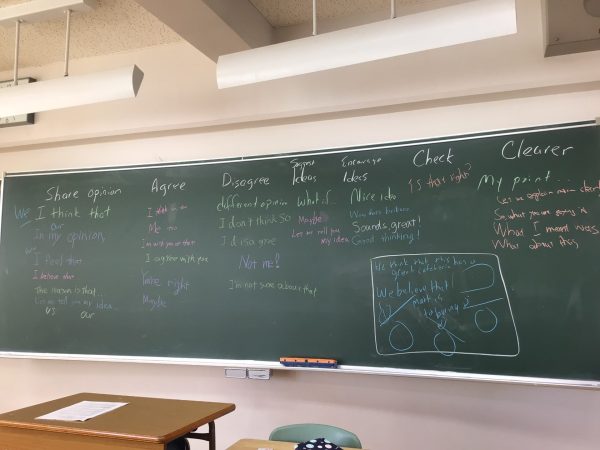 Share opinion
We I think that
our
In my opinion,
We
I feel that
I believe that
The reason is that...
Let me tell you my idea
us our
Agree
I think so too
Me too
I'm with you on that
I agree with you
You're right
Maybe
Disagree
different opinion
I don't think so
I disagree
Not me!
I'm not sure about that
Suggest
Ideas
what if...
Maybe
Let me tell you
my idea
Encourage
Ideas
Nice idea
Sounds great!
Good thinking!
Check
Is that right?
Clearer
My point...
Let me explain more clearly
So what you are saying is
What I meant was
What about this
We think that this has a
great
We believe that